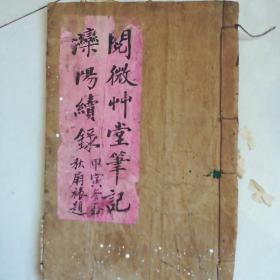 閱微艸堂筆記
灤陽續錄
甲寅冬
秋扇 題